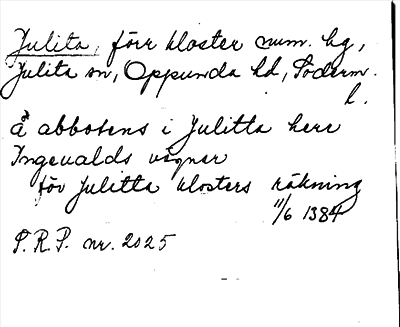 Julita, förr kloster num. hg,
Julita sn, Oppunda hd, Söderm.
l.
å abbotens i Julitta herr
Ingevalds vägner
för Julitta klosters räkning
11/6 1384
S.R.P. nr. 2025